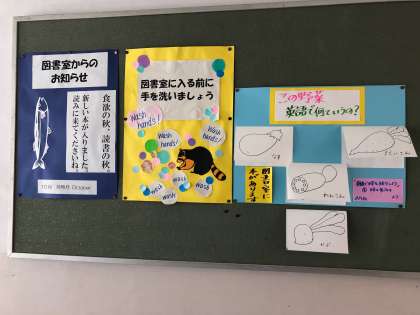 図書室からの
お知らせ
食欲の秋、読書の秋、
新しい本が入りました。
読みに来てくださいね。
図書室に入る前に
手を洗いましょう
Wash
hands!
Wash
hands!
Wash
hands!
Wash
Wash
Wash
Wash
この野菜
英語で何ていうの?
なす
れんこん
図書室に
本があります
かぶ